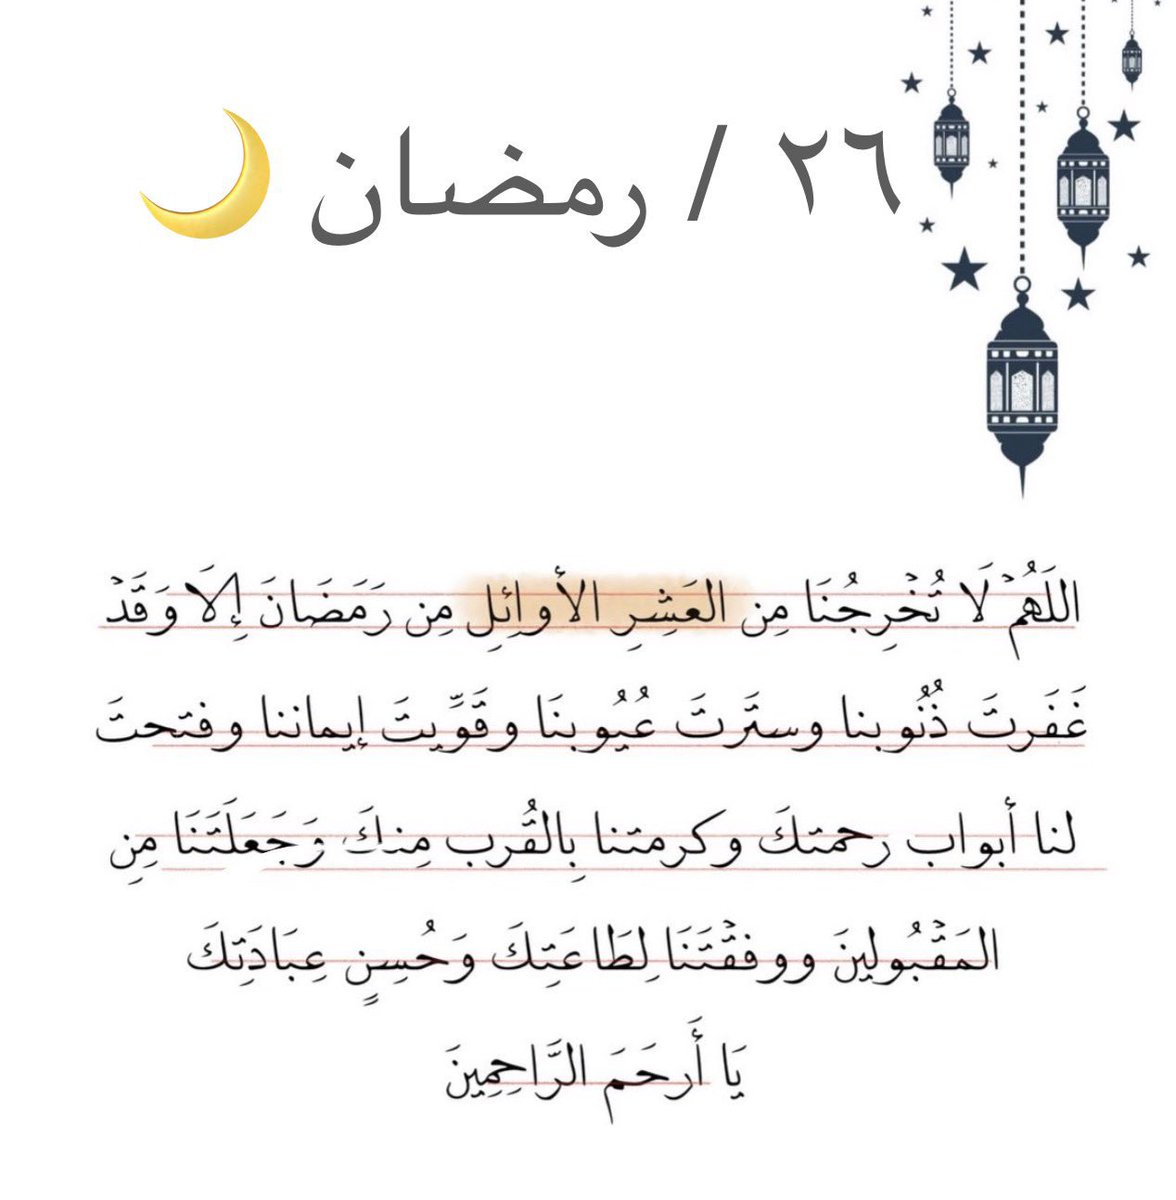 ٢٦ / رمضان 🌙
اللَهُمْ لَا تُخْرِجُنَا مِن العَشِرِ الأوائِلِ مِن رَمَضَانَ إِلَا وَقَدْ
غَفَرتَ ذُنُوبنا وستَرتَ عُيُوبنَا وقَوِّيتَ إيماننا وفتحتَ
لنا أبواب رحمتكَ وكرمتنا بِالقُرب مِنكَ وَجَعَلَتَنَا مِنِ
المَقْبُولينَ ووفقْتَنَا لِطَاعَتِكَ وَحُسِنٍ عِبَادَتِكَ
يَا أَرحَمَ الرَّاحِمِينَ